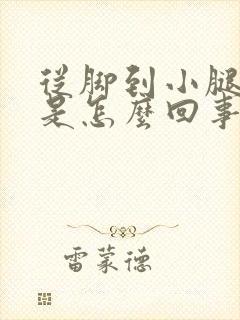 从脚到小腿
是怎麼回事
雷蒙德